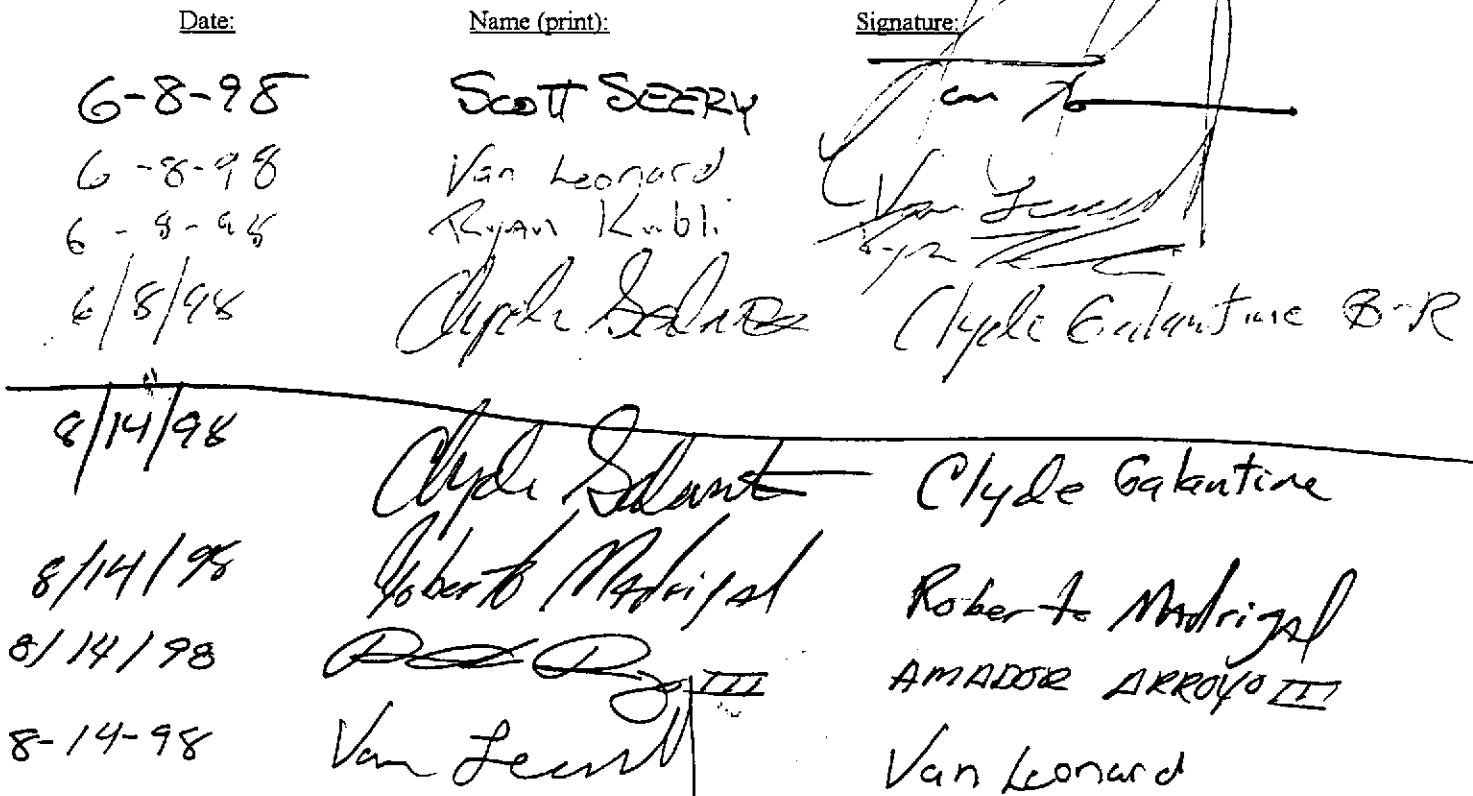 Date: Name (print): Signature:
6-8-98 Scott SEERY
6-8-98 Van Leonard Van
6-8-98 Ryan Kubli Ryan
6/8/98 Clyde Clyde Galantine B-R
8/14/98 Clyde Clyde Galantine
8/14/98 Roberto Madrigal Roberto Madrigal
8/14/98 III AMADOR ARROYO III
8-14-98 Van Van Leonard